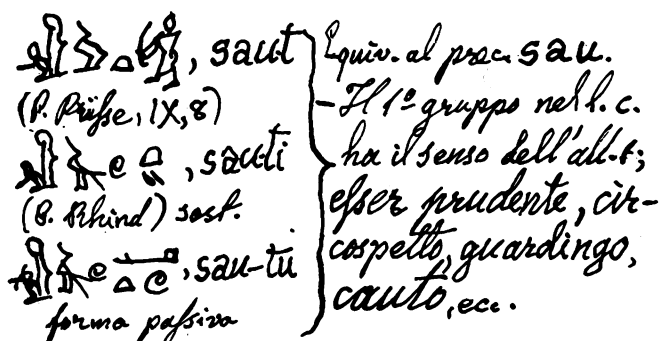 , saut
(P. Prisse, IX, 8)
, sauti
(P. Rhind) sost.
, sau-tu
forma passiva
Equiv. al prec. sau.
– Il 1º gruppo nel l. c.
ha il senso dell'all.t;
esser prudente, cir-
cospetto, guardingo,
cauto, ecc.